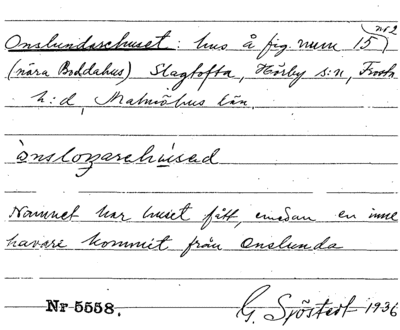 Onslundaschuset: hus å fig. num 15 nr 2
(nära Boddahus) Slagtofta, Hörby s:n, Frosta
h:d, Malmöhus län.
Namnet har huset fått, emedan en inne
havare kommit från Onslunda
Nr 5558. G. Sjöstedt 1936